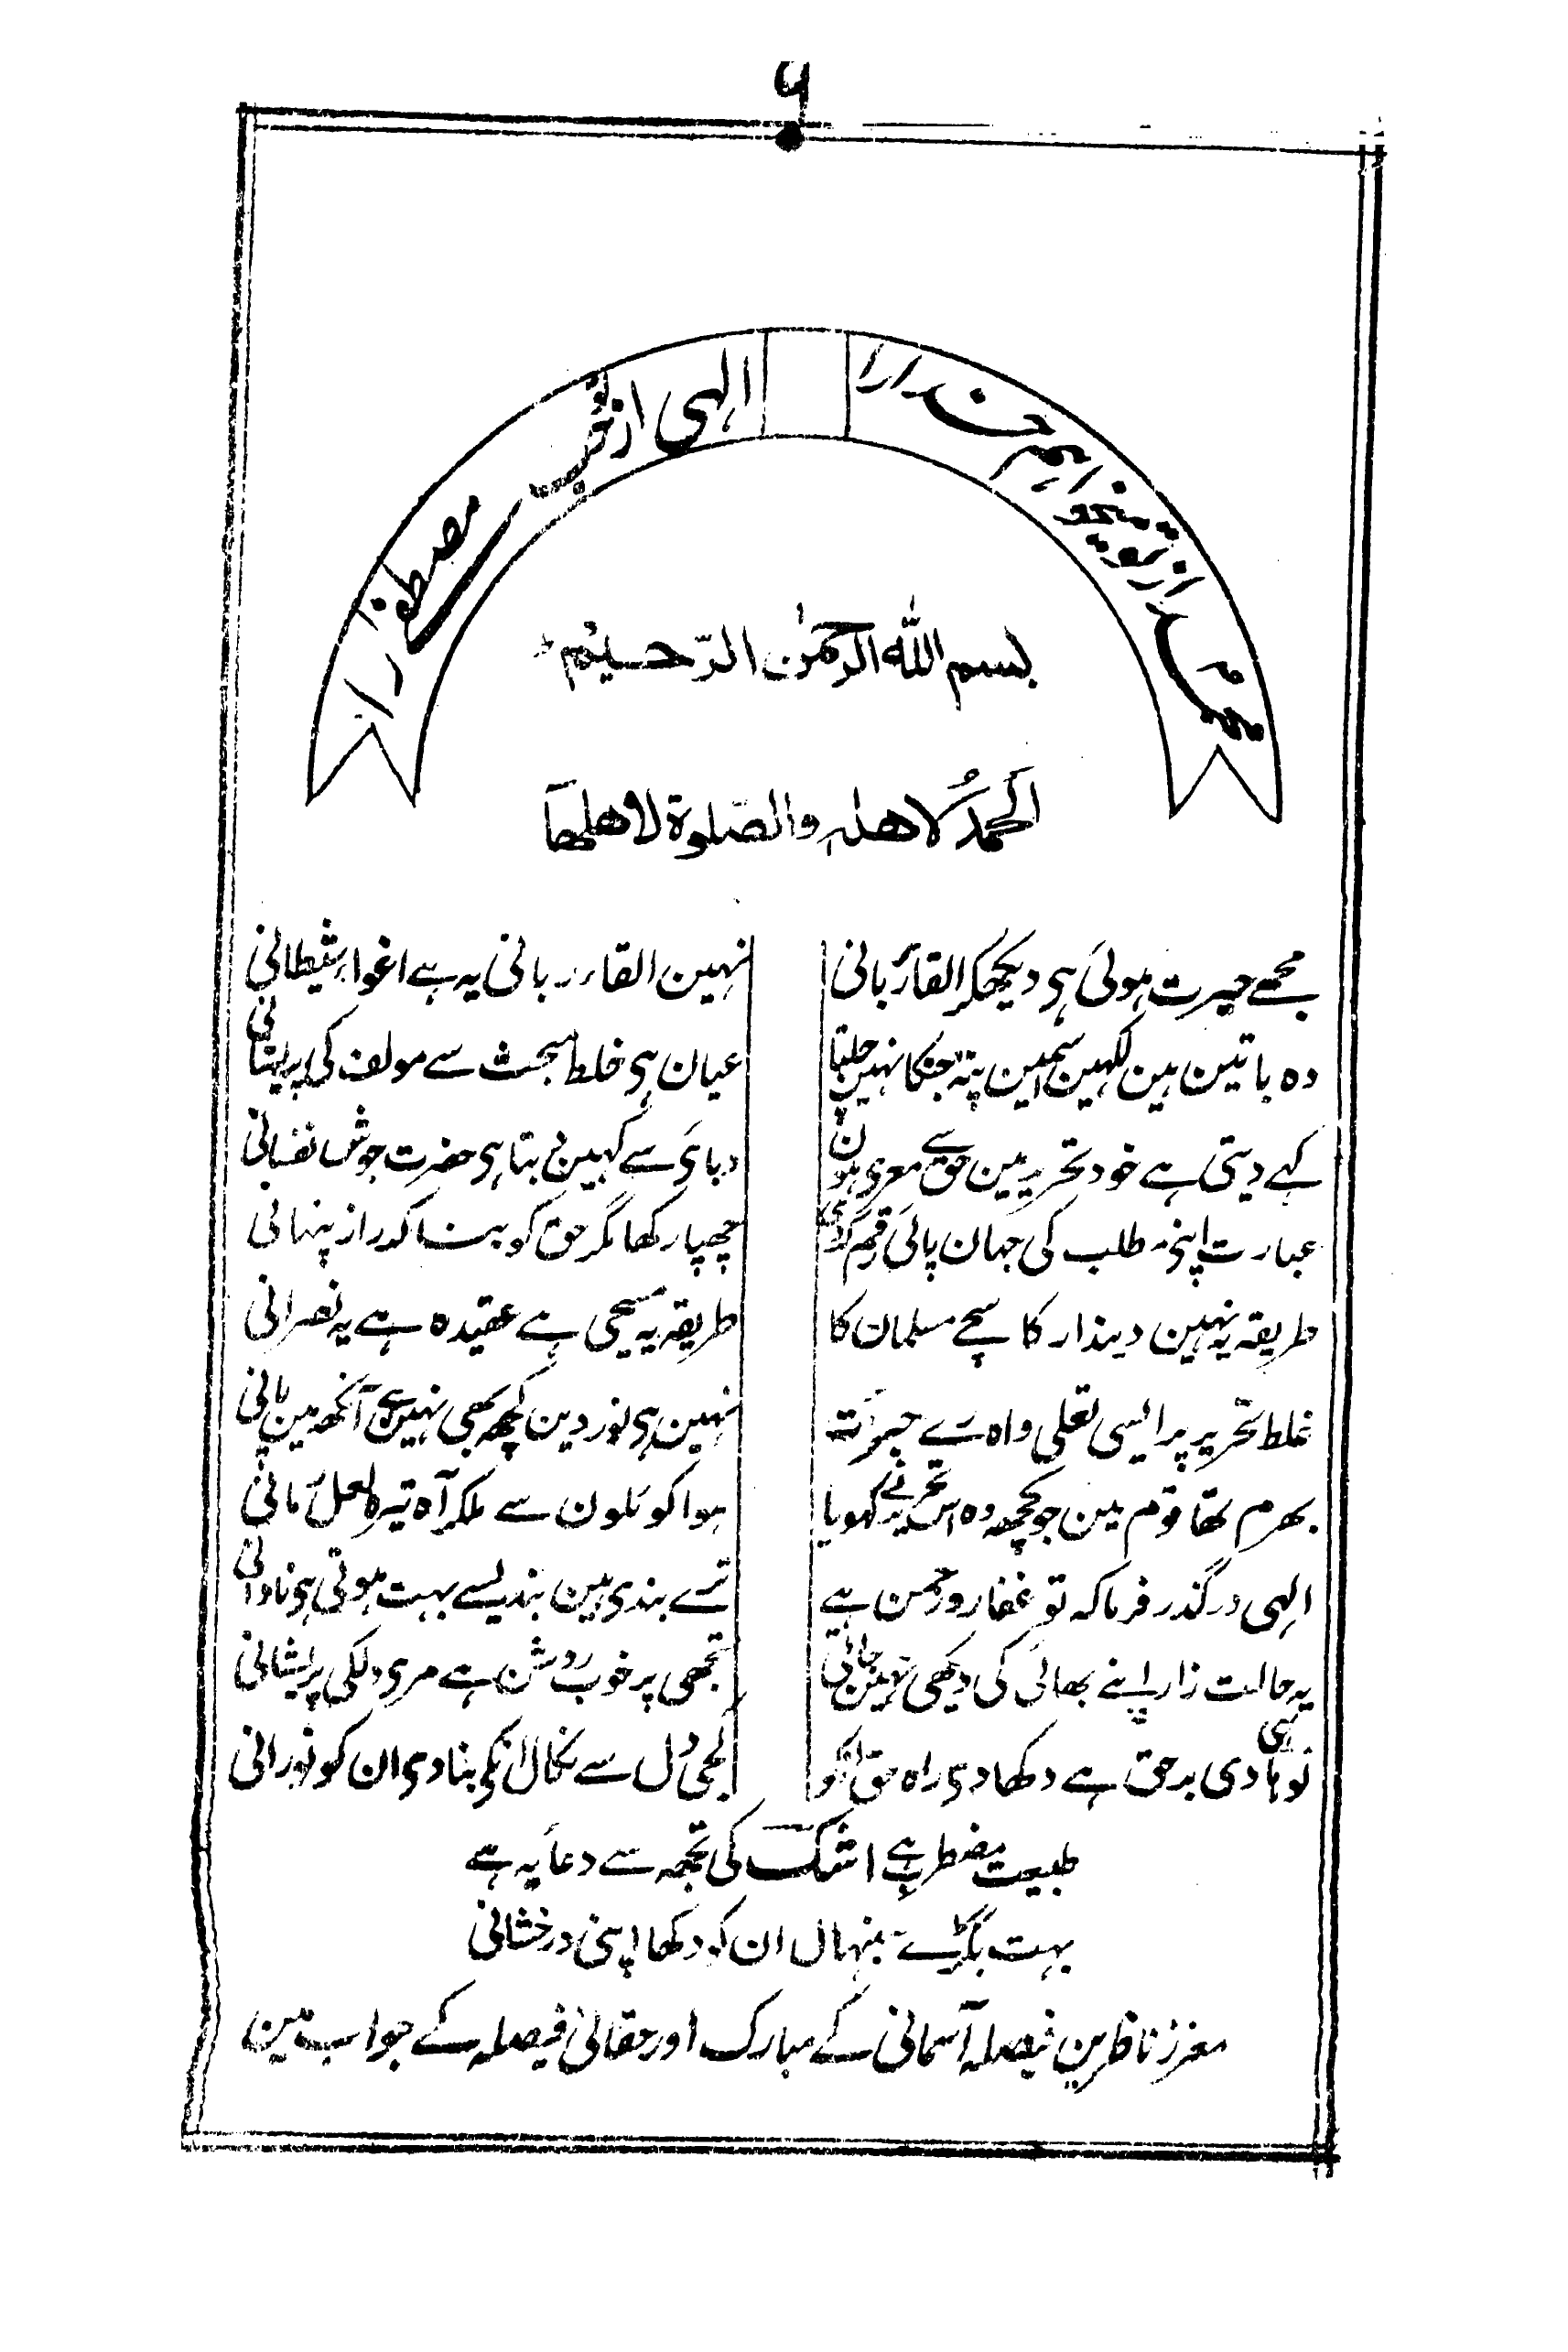 ۶
محمد از تو میخواہم خدارا
الہی از تو حب مصطفےٰ را
بسم اللہ الرحمٰن الرّحیم
اَلحمدُ لاھلہ والصّلوۃ لاھلھا
مجھے حیرت ہوئی ہی دیکھکر القاء ربانی
نہین القاء ربانی یہ ہے اغواء شیطانی
وہ باتین ہین لکہین سمین پتہ جنکا نہین چلتا
عیان ہی خلط مبحث سے مولف کی پریشانی
کہے دیتی ہے خود تحریر مین حق سے معری ہون
دبائے سے کہین دبتا ہی حضرت جوش نفسانی
عبارت اپنے مطلب کی جہان پائی رقم کردی
چھپا رکھا مگر حق کو بنا کر راز پنہانی
طریقہ یہ نہین دیندار کا سچے مسلمان کا
طریقہ یہ مسیحی ہے عقیدہ ہے یہ نصرانی
غلط تحریر پر ایسی تعلی واہ رے جرأت
نہین ہی نور دین کچھ بھی نہین ہے آنکھ مین پانی
بھرم تھا قوم مین جو کچھ وہ اس تحریر نے کھویا
ہوا کوئلون سے ملکر آہ تیرہ لعل رمانی
الہی درگذر فرما کہ تو غفار و رحمن ہے
ترے بندی ہین بندیسے بہت ہوتی ہی نادانی
یہ حالت زار اپنے بھائی کی دیکھی نہین جاتی
تجھی پر خوب روشن ہے مری دلکی پریشانی
تو ہی ہادی برحق ہے دکھا دی راہ حق انکو
کجی دل سے نکال انکی بنا دی ان کو نورانی
طبیعت مضطر ہے اشک کی تجھہ سے دعا یہ ہے
بہت بگڑے سنبہال ان کو دکھا اپنی درخشانی
معزز ناظرین فیصلہ آسمانی کے مبارک اور حقانی فیصلہ کے جواب مین